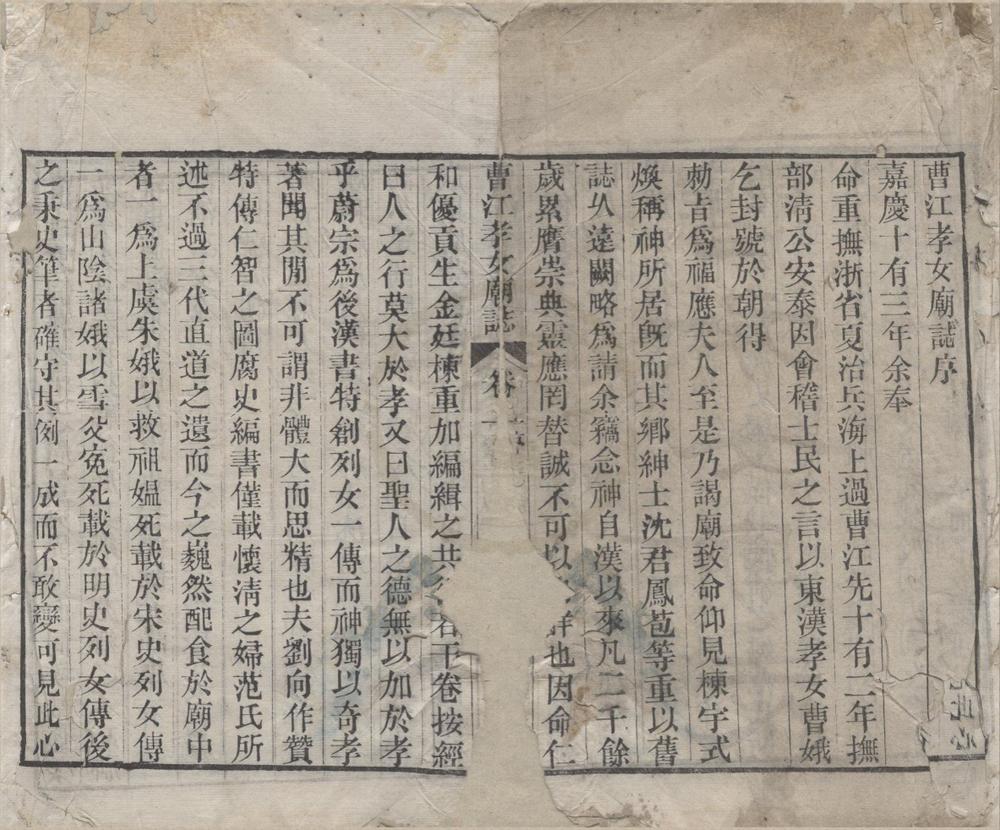 曹江孝女廟誌序
嘉慶十有三年余奉
命重撫浙省夏治兵海上過曹江先十有二年撫
部清公安泰因會稽士民之言以東漢孝女曹娥
乞封號於朝得
勅㫖爲福應夫人至是乃謁廟致命仰見棟宇式
煥稱神所居旣而其鄉紳士沈君鳳苞等重以舊
誌乆遠闕略爲請余竊念神自漢以來凡二千餘
歲累膺崇典靈應罔替誠不可以詳也因命仁
曹江孝女廟誌 卷一 序
和優貢生金廷棟重加編緝之共得若干卷按經
曰人之行莫大於孝又曰聖人之德無以加於孝
乎蔚宗爲後漢書特創列女一傳而神獨以奇孝
著聞其閒不可謂非體大而思精也夫劉向作贊
特傳仁智之圖腐史編書僅載懷淸之婦范氏所
述不過三代直道之遺而今之巍然配食於廟中
者一爲上虞朱娥以救祖媼死載於宋史列女傳
一爲山陰諸娥以雪父寃死載於明史列女傳後
之秉史筆者確守其例一成而不敢變可見此心